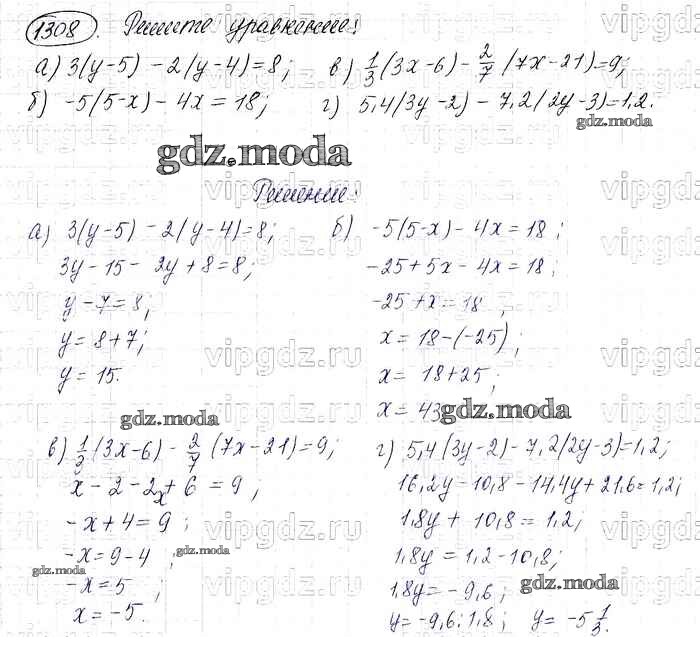 1308. Решите уравнение:
а) 3(y-5) - 2(y-4)=8; в) 1/3(3x-6) - 2/7(7x-21)=9;
б) -5(5-x) - 4x = 18; г) 5,4(3y-2) - 7,2(2y-3)=1,2.
gdz.moda
gdz.moda
Решение:
а) 3(y-5) - 2(y-4)=8; б) -5(5-x) - 4x = 18;
3y - 15 - 2y + 8 = 8; -25 + 5x - 4x = 18;
y - 7 = 8; -25 + x = 18
y = 8+7; x = 18-(-25);
y = 15. x = 18+25;
x = 43
gdz.moda
gdz.moda
в) 1/3(3x-6) - 2/7(7x-21)=9; г) 5,4(3y-2) - 7,2(2y-3)=1,2;
x - 2 - 2x + 6 = 9; 16,2y - 10,8 - 14,4y + 21,6 = 1,2;
-x + 4 = 9; 1,8y + 10,8 = 1,2;
-x = 9-4; 1,8y = 1,2-10,8;
gdz.moda
gdz.moda
-x = 5; 1,8y = -9,6;
gdz.moda
x = -5. y = -9,6:1,8; y = -5 1/3.
vipgdz.ru
vipgdz.ru
vipgdz.ru
vipgdz.ru
vipgdz.ru
vipgdz.ru